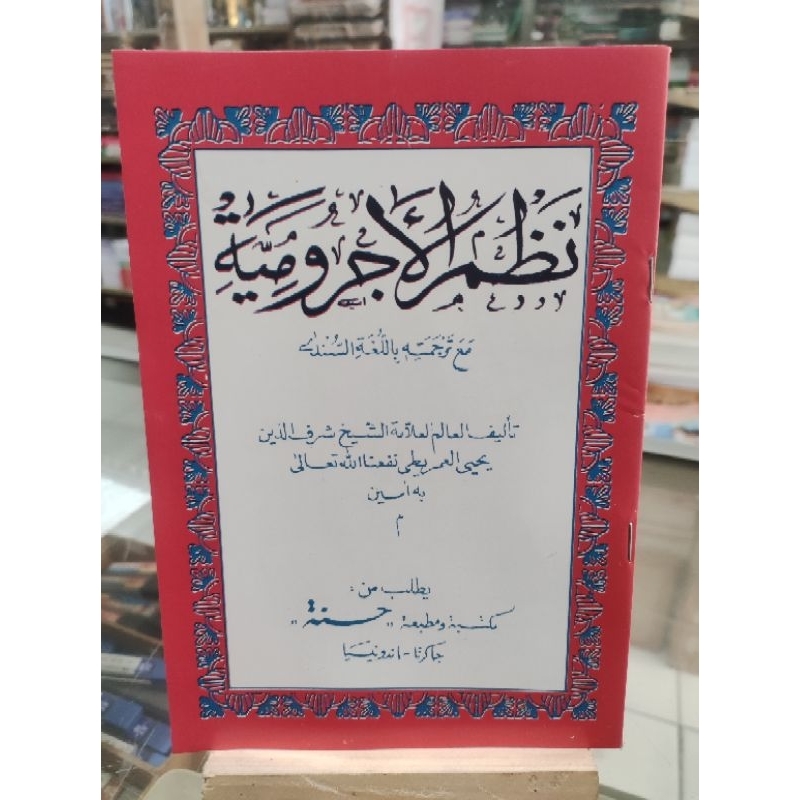 نَظْمُ الْأَجُرُّومِيَّةِ
مَعَ تَرْجَمَتِهِ بِاللُّغَةِ السُّنْدَاىِ
تأليف العالم لعلامة الشيخ شرف الدين
يحيى العمريطى نفعنا الله تعالى
به امين
م
يطلب من :
مكتبة ومطبعة "حسنة"
جاكرتا - اندونيسيا